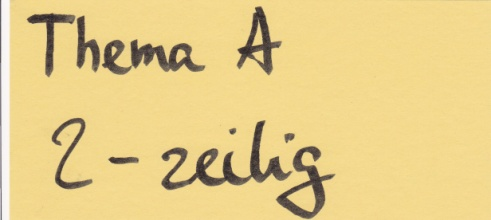 Thema A
2-zeilig